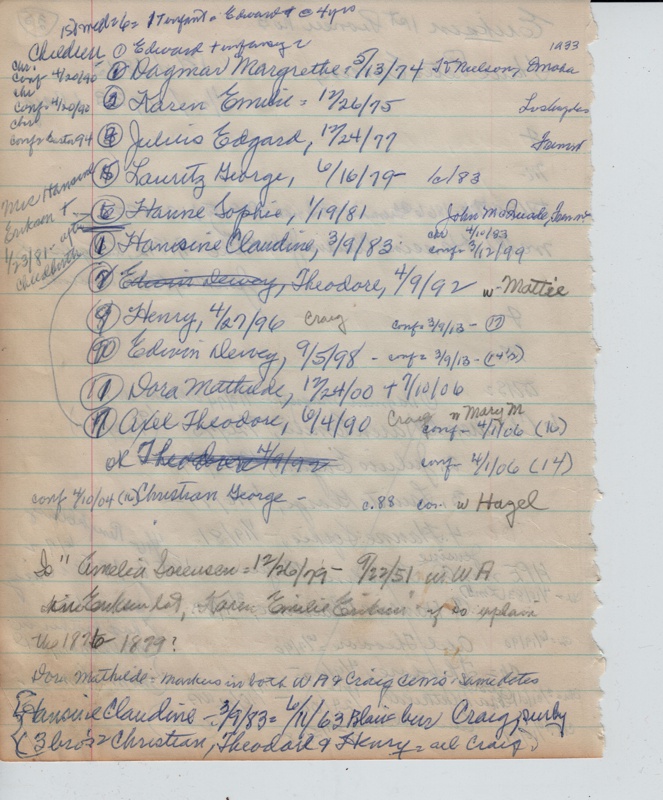 1st md = 6 = 1 infant + Edward @ 4 yrs
Children ① Edward + infancy 2
1933
chr.
conf 4/20/90
② Dagmar Margrethe = 5/13/74 K Nielson, Omaha
chr
conf 4/20/90
③ Karen Emilie = 12/26/75 Los Angeles
chr
conf 94
④ Julius Edgard, 12/24/77 Fremont
⑤ Lauritz George, 6/16/79 - 10/83
Mrs Hansine
Erikson +
1/23/81 - after
childbirth
⑥ Hanne Sophie, 1/19/81 John McQuade, Fremont
chr 4/10/83
Hansine Claudine, 3/9/83 conf = 3/12/99
Edwin Dewey, Theodore, 4/9/92 w - Mattie
⑨ Henry, 4/27/96 Craig conf = 3/9/13 - (17)
⑩ Edwin Dewey, 9/5/98 - conf = 3/9/13 - (14½)
⑪ Dora Mathilde, 12/24/00 + 7/10/06
Axel Theodore, 6/4/90 Craig w Mary M
conf - 4/1/06 (16)
ok Theodore 4/9/92 conf - 4/1/06 (14)
conf 4/10/04 (16) Christian George - c. 88 w Hazel
Is "Amelia Sorensen = 12/26/79 - 9/22/51 in W A
in Erikson lot, Karen Emilie Erikson" if so explain
the 1876 1879?
Dora Mathilde = markers in both W A & Craig cem's same dates
Hansine Claudine - 3/9/83 = 6/11/63 Blair bur Craig
3 bros = Christian, Theodore & Henry = all Craig